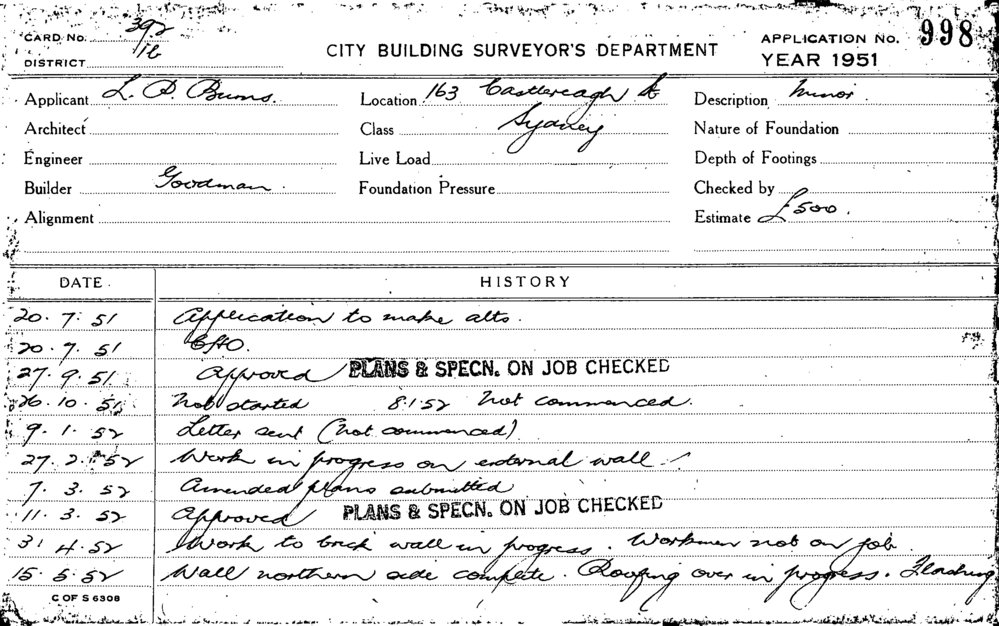 CARD No. 392/16
CITY BUILDING SURVEYOR'S DEPARTMENT
APPLICATION No. 998
DISTRICT
YEAR 1951
Applicant L. P. Burns. Location 163 Castlereagh St Description Minor
Architect Class Sydney Nature of Foundation
Engineer Live Load Depth of Footings
Builder Goodman. Foundation Pressure Checked by
Alignment Estimate £500.
DATE. HISTORY
20. 7. 51 Application to make alts.
20. 7. 51
27. 9. 51 Approved PLANS & SPECN. ON JOB CHECKED
26. 10. 51 Not started 8.1.52 Not commenced.
9. 1. 52 Letter sent (not commenced)
27. 2. 52 Work in progress on external wall.
7. 3. 52 Amended plans submitted
11. 3. 52 Approved PLANS & SPECN. ON JOB CHECKED
31 4. 52 Work to brick wall in progress. Workmen not on job
15. 5. 52 Wall northern side complete. Roofing over in progress. Flashing
C OF S 6308